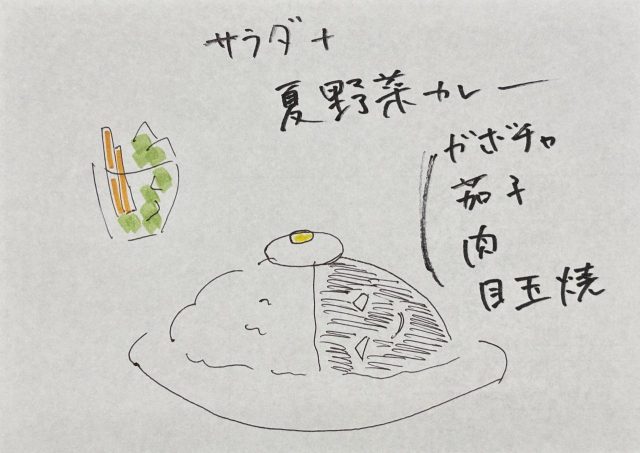 サラダ+
夏野菜カレー
ガボチャ
茄子
肉
目玉焼